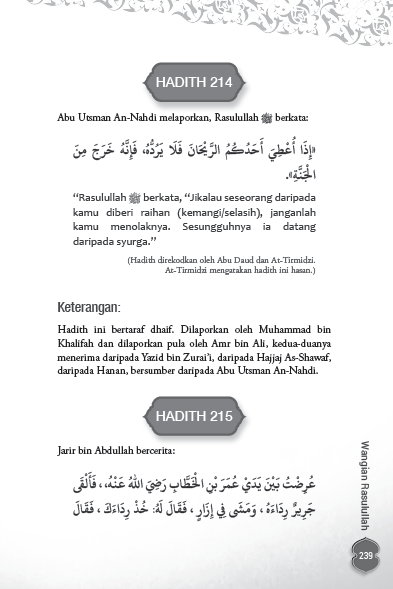 HADITH 214
Abu Utsman An-Nahdi melaporkan, Rasulullah ﷺ berkata:
«إِذَا أُعْطِيَ أَحَدُكُمُ الرَّيْحَانَ فَلَا يَرُدُّهُ، فَإِنَّهُ خَرَجَ مِنَ
الْجَنَّةِ».
“Rasulullah ﷺ berkata, “Jikalau seseorang daripada
kamu diberi raihan (kemangi/selasih), janganlah
kamu menolaknya. Sesungguhnya ia datang
daripada syurga.”
(Hadith direkodkan oleh Abu Daud dan At-Tirmidzi.
At-Tirmidzi mengatakan hadith ini hasan.)
Keterangan:
Hadith ini bertaraf dhaif. Dilaporkan oleh Muhammad bin
Khalifah dan dilaporkan pula oleh Amr bin Ali, kedua-duanya
menerima daripada Yazid bin Zurai’i, daripada Hajjaj As-Shawaf,
daripada Hanan, bersumber daripada Abu Utsman An-Nahdi.
HADITH 215
Jarir bin Abdullah bercerita:
عُرِضْتُ بَيْنَ يَدَيْ عُمَرَ بْنِ الْخَطَّابِ رَضِيَ اللهُ عَنْهُ، ، فَأَلْقَى
جَرِيرٌ رِدَاءَهُ ، وَمَشَى فِي إِزَارٍ ، فَقَالَ لَهُ: خُذْ رِدَاءَكَ ، فَقَالَ
Wangian Rasulullah
239